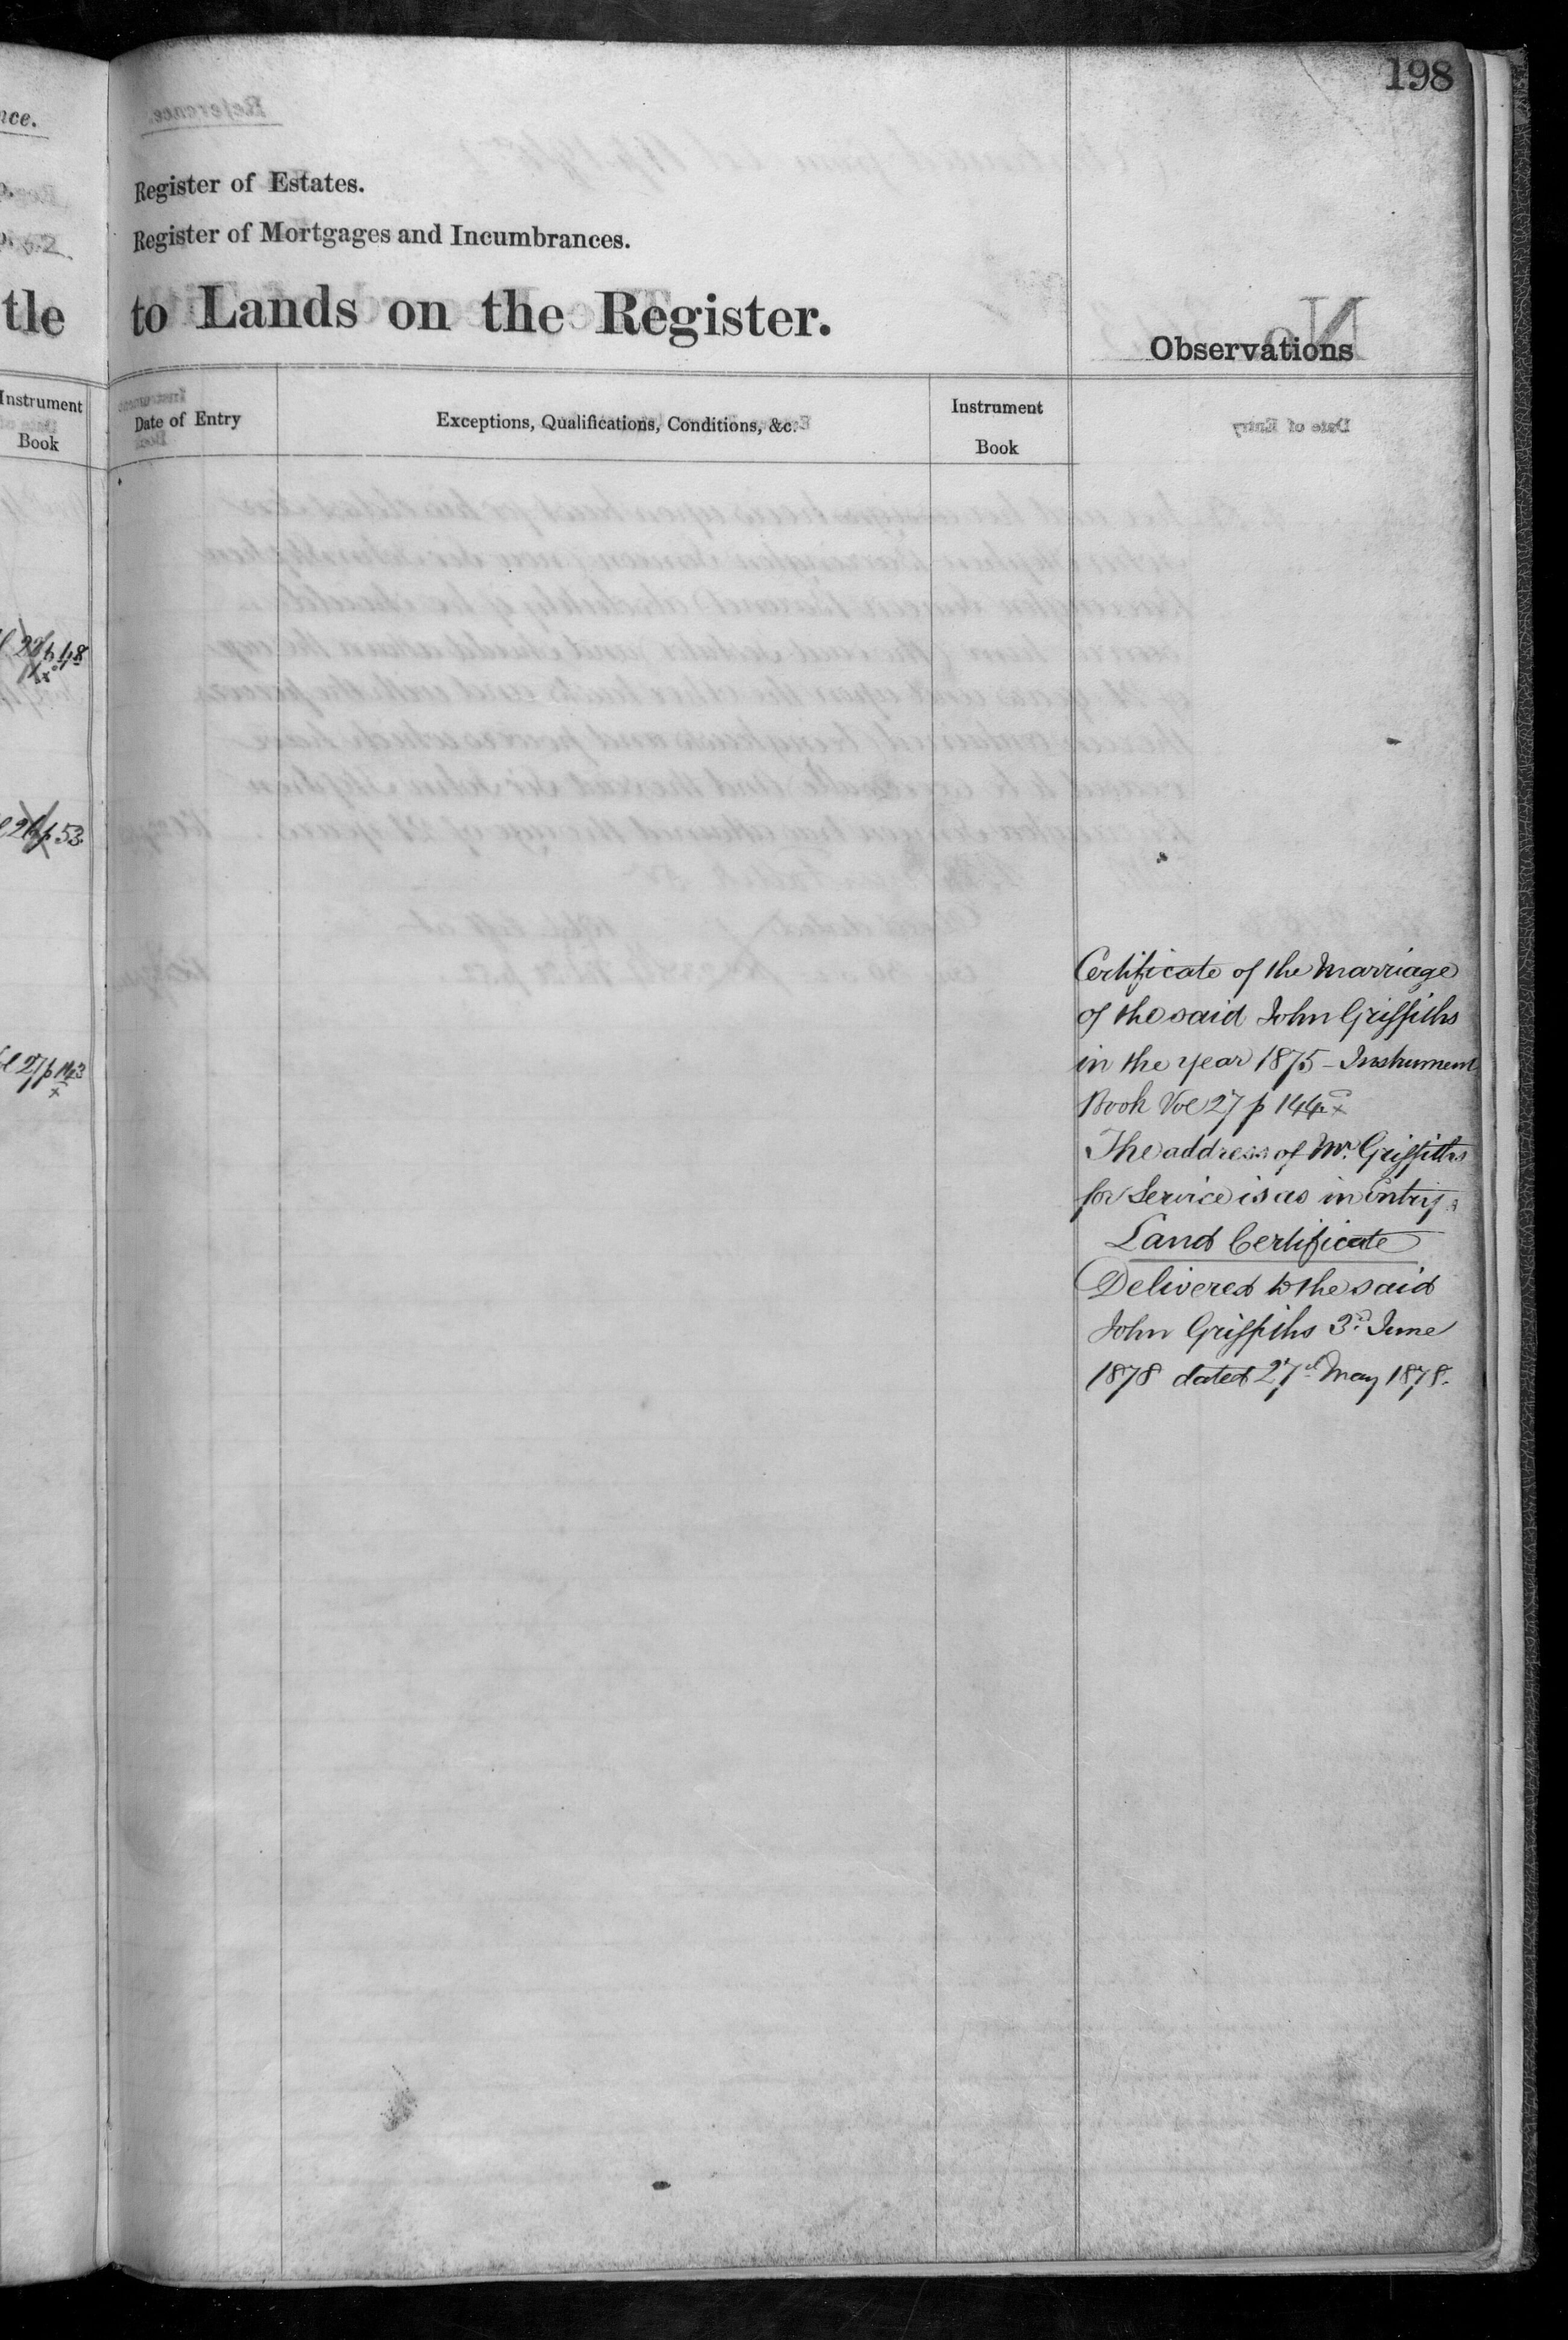 198
nce.
Register of Estates.
Register of Mortgages and Incumbrances.
tle to Lands on the Register.
Observations
Instrument
Book
Date of Entry
Exceptions, Qualifications, Conditions, &c.
Instrument
Book
p 48
p 53
27 p 143
Certificate of the Marriage
of the said John Griffiths
in the year 1875 - Instrument
Book Vol 27 p 144
The address of Mr. Griffiths
for Service is as in Entry
Land Certificate
Delivered to the said
John Griffiths 3rd June
1878 dated 27th May 1878.